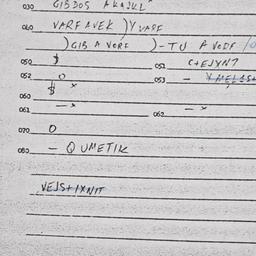 030 GIBDOS AKAJKL
040 VARFAVEK )Y VARF
)GIB A VORF )-TU A VODF
050 $ 051 C+EJYN?
052 O 053 -
$ x
060
061 - x 062 - x
070 O
080 - QUMETIK
VEJS+IXNIT